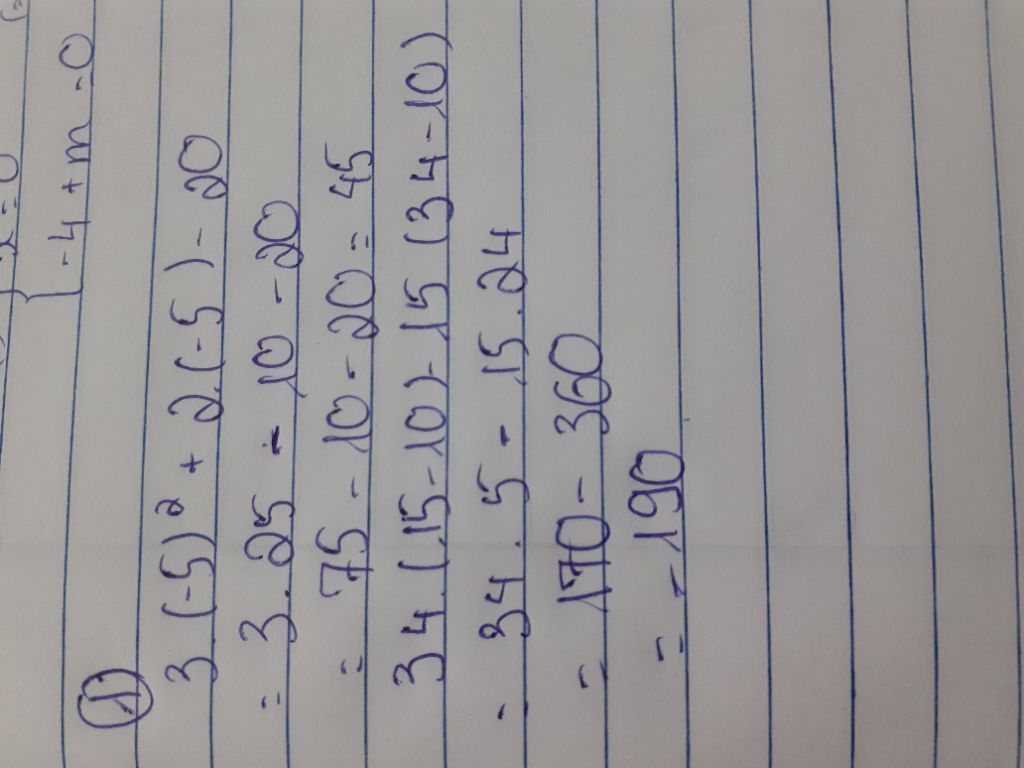 -4 + m = 0
①
3.(-5)² + 2.(-5) - 20
= 3.25 - 10 - 20
= 75 - 10 - 20 = 45
34.(15-10) - 15(34-10)
= 34.5 - 15.24
= 170 - 360
= -190